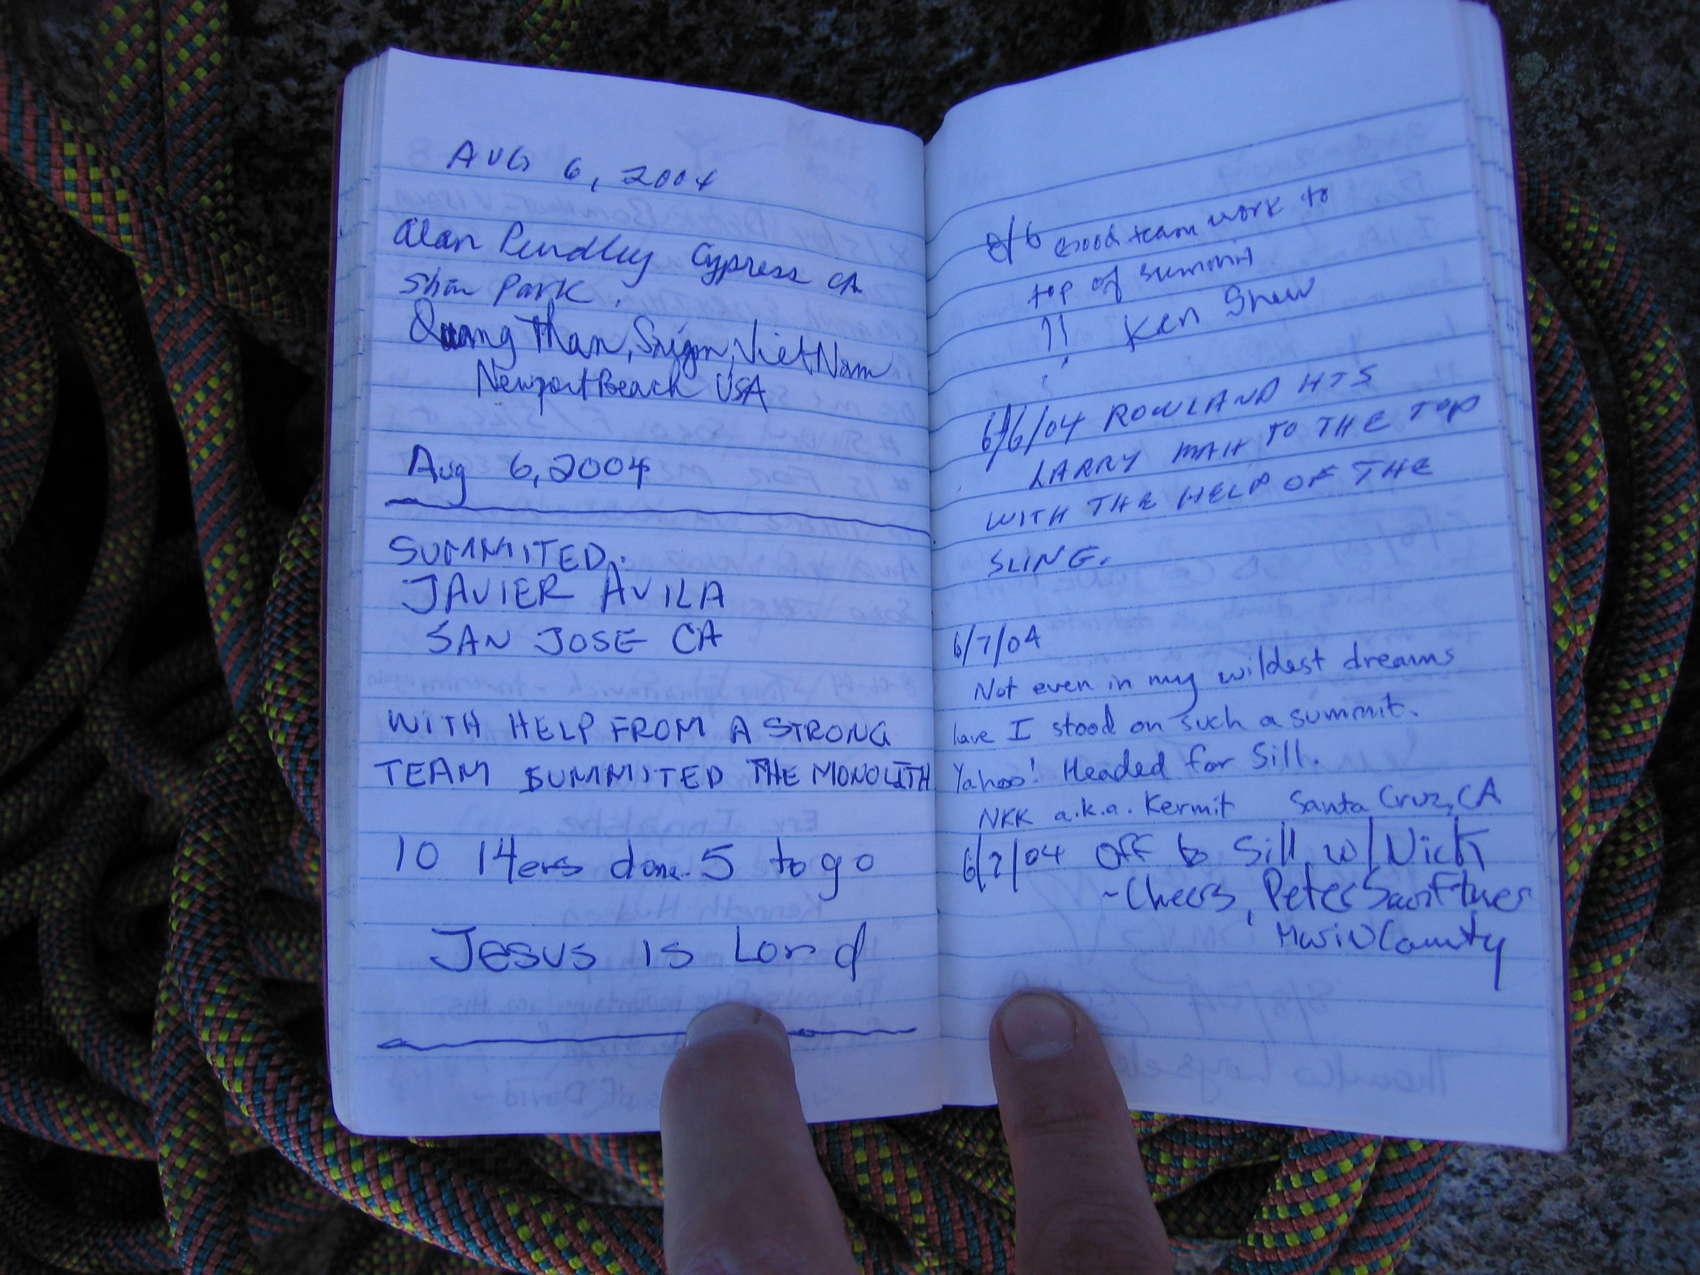 AUG 6, 2004
Alan Pendley Cypress CA
Shin Park.
Quang Than, Saigon, Viet Nam
Newport Beach USA
Aug 6, 2004
SUMMITED.
JAVIER AVILA
SAN JOSE CA
WITH HELP FROM A STRONG
TEAM SUMMITED THE MONOLITH
10 14ers done. 5 to go
Jesus is Lord
8/6 Good team work to
top of summit
!! Ken
6/6/04 ROWLAND HTS
LARRY MAH TO THE TOP
WITH THE HELP OF THE
SLING.
6/7/04
Not even in my wildest dreams
have I stood on such a summit.
Yahoo! Headed for Sill.
NKK a.k.a. Kermit Santa Cruz, CA
6/7/04 Off to Sill w/ Nick
~Cheers, Peter
Marin County